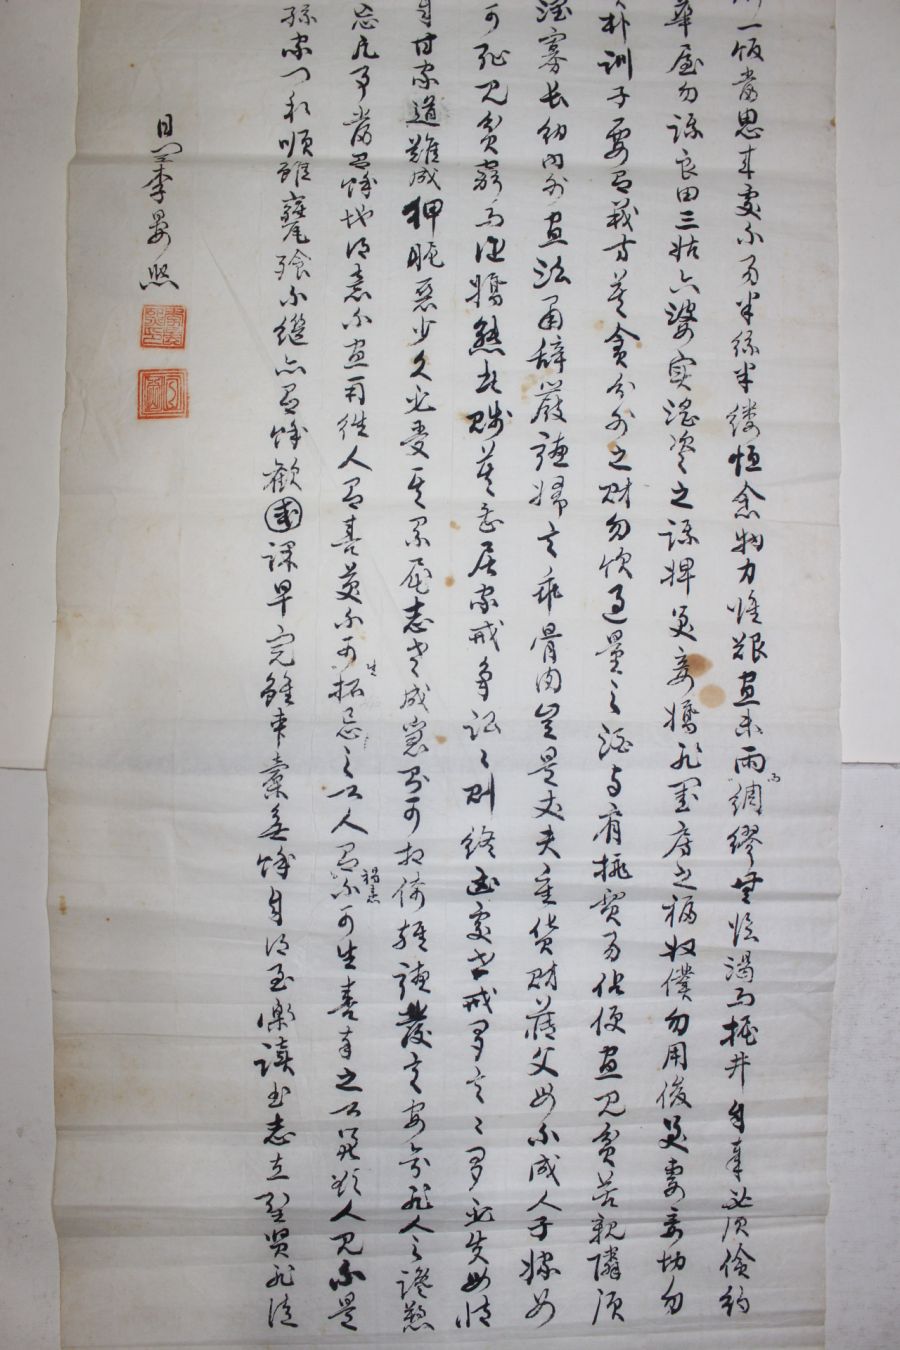 粥一飯當思來處不易半絲半縷恒念物力惟艱宜未雨而綢繆無臨渴而掘井自奉必須儉約
華屋勿謀良田三姑六婆實淫盜之媒婢美妾嬌非閨房之福奴僕勿用俊美妻妾切勿
朴訓子要有義方莫貪分外之財勿飲過量之酒与肩挑貿易佔便宜見貧苦親隣須
潤寡長幼內外宜法肅辭嚴聽婦言乖骨肉豈是丈夫重貨財薄父母不成人子嫁女
可恥見貧窮而作驕態者賤莫甚居家戒爭訟〻則終凶處世戒多言〻多必失毋恃
自甘家道難成狎昵惡少久必受其累屈志老成急則可相倚輕聽發言安知非人之譖愬
忘凡事當留餘地得意不宜再往人有喜慶不可生妬忌之心人有禍患不可生喜幸之心善欲人見不是
孫家門和順雖饔飧不繼亦有餘歡國課早完雖囊橐無餘自得至樂讀書志在聖賢非徒
日李晏熙